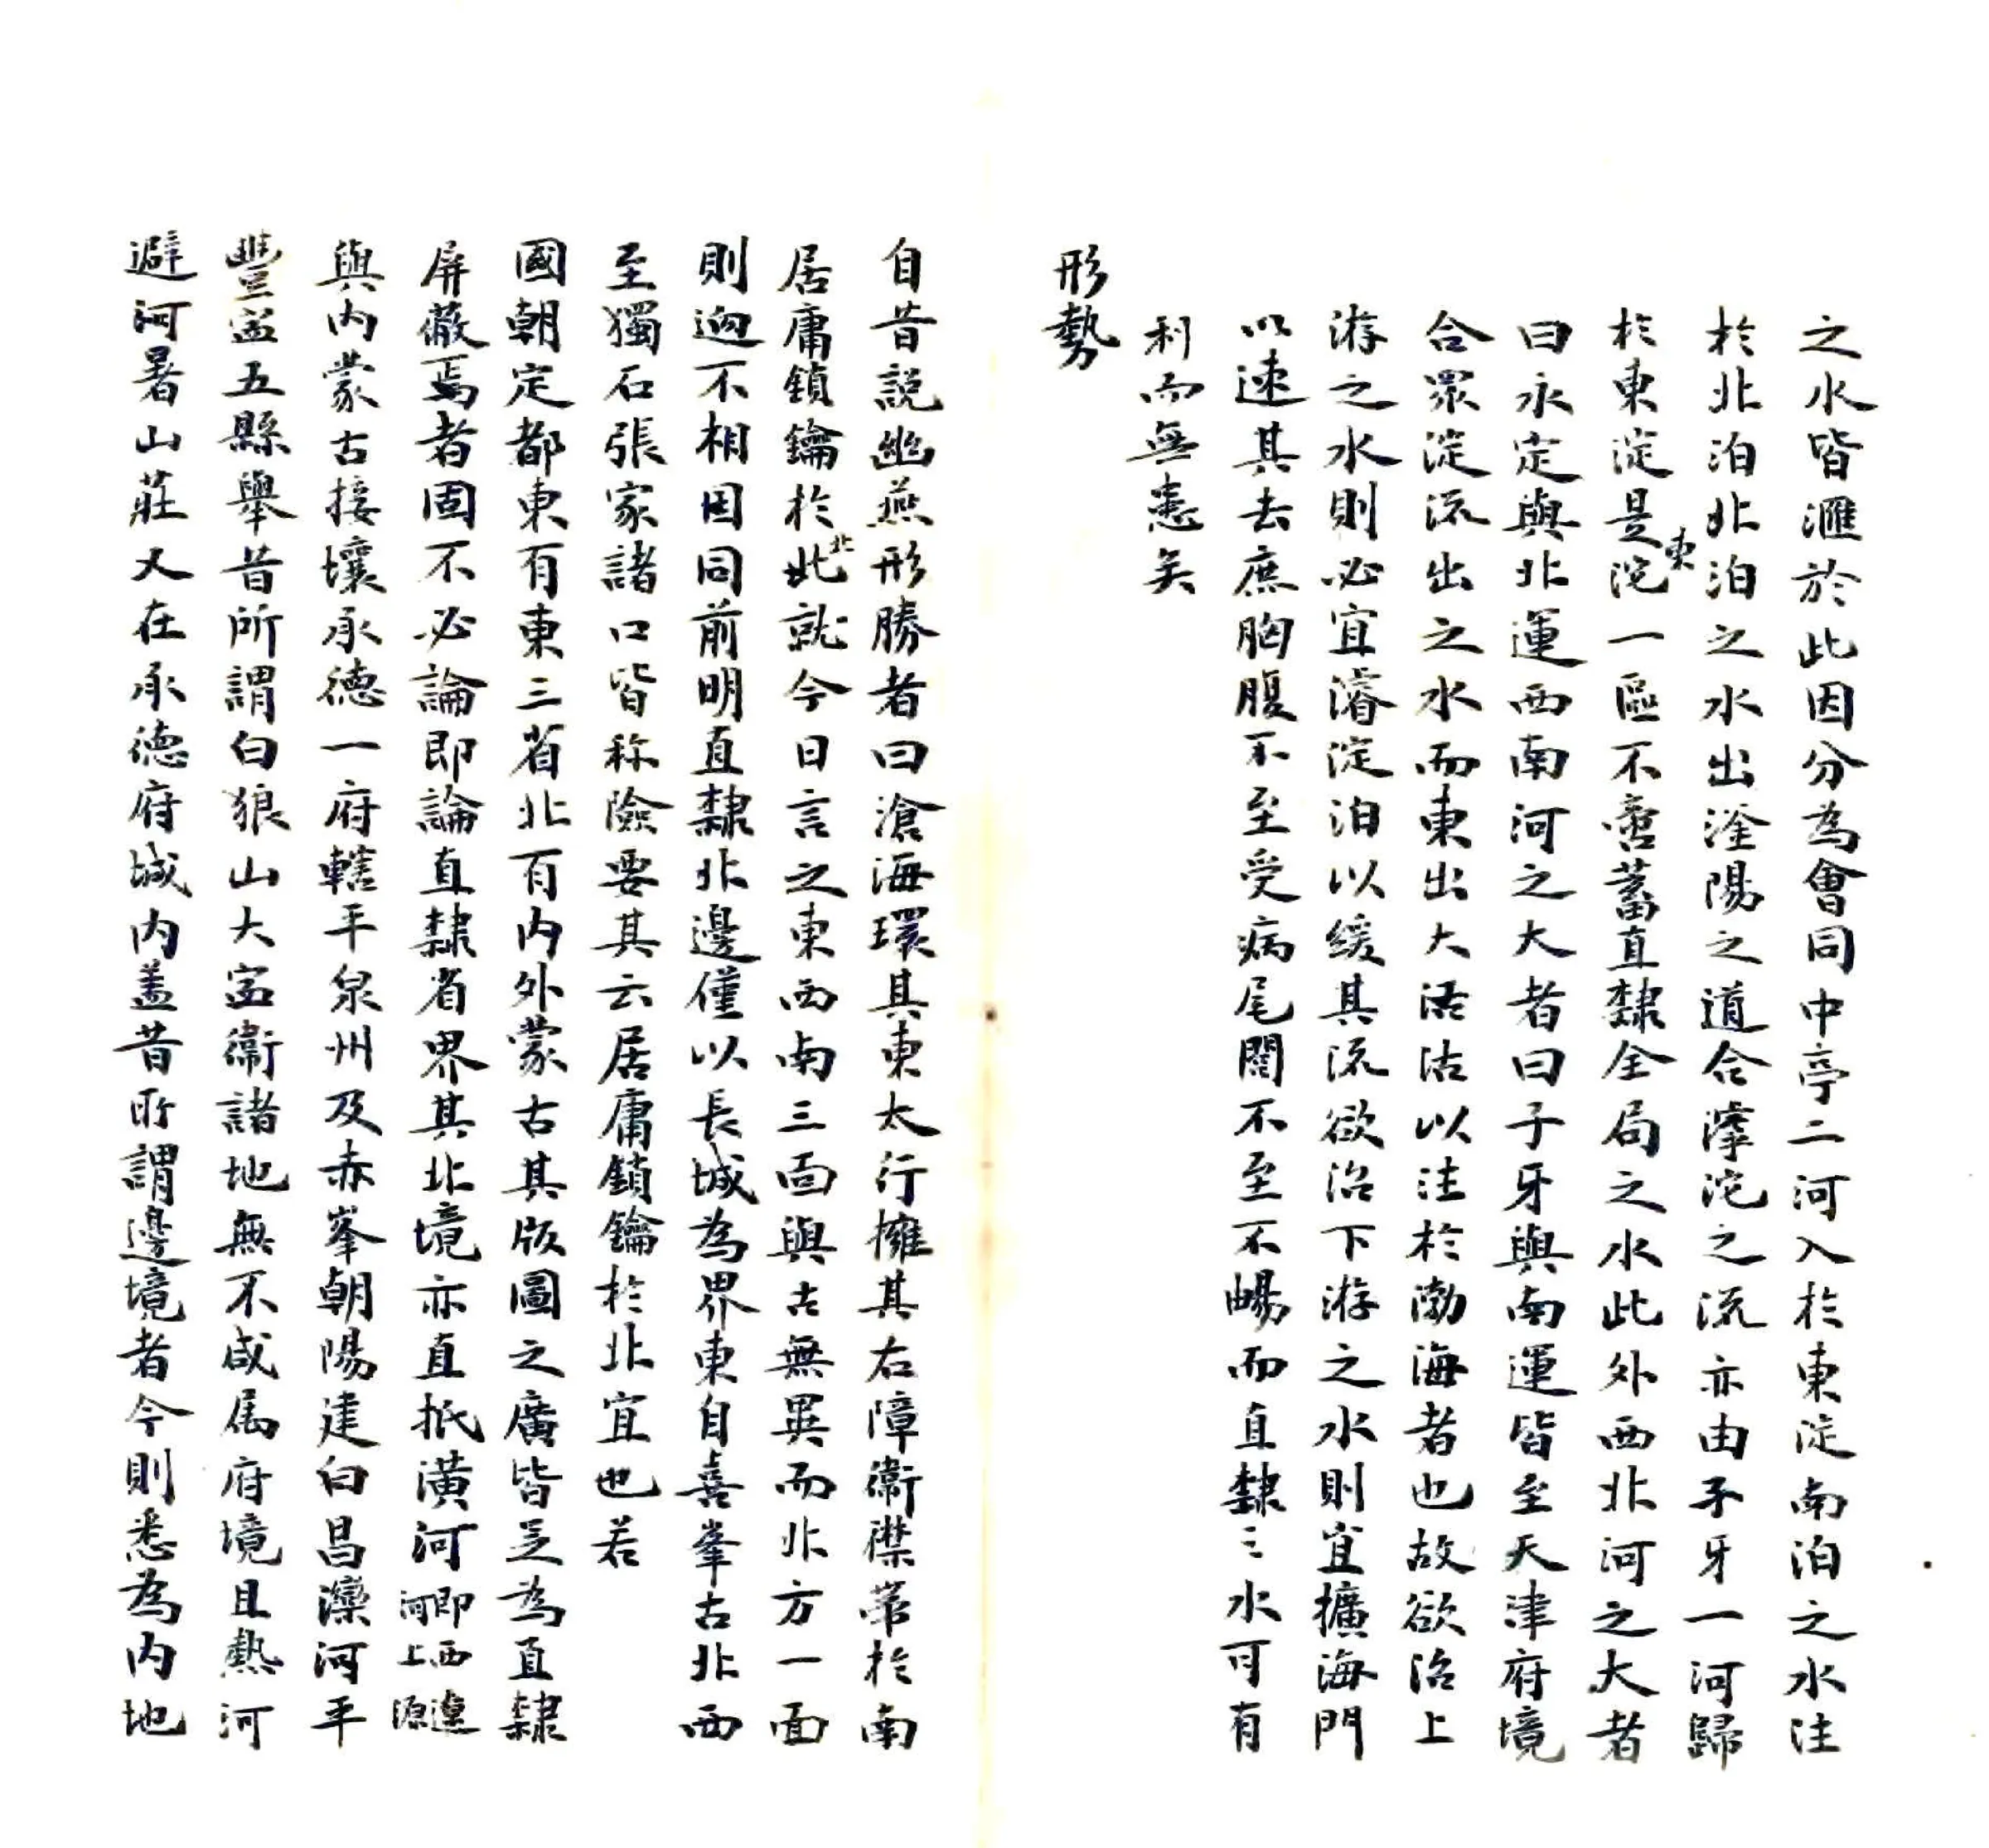 之水皆滙於此因分為會同中亭二河入於東淀南泊之水注
於北泊北泊之水出滏陽之道合滹沱之流亦由子牙一河歸
於東淀是東淀一區不啻蓄直隸全局之水此外西北河之大者
曰永定與北運西南河之大者曰子牙與南運皆至天津府境
合眾淀流出之水而東出大沽沽以注於渤海者也故欲治上
游之水則必宜濬淀泊以緩其流欲治下游之水則宜擴海門
以速其去庶胸腹不至受病尾閭不至不暢而直隸之水可有
利而無患矣
形勢
自昔說幽燕形勝者曰滄海環其東太行擁其右障衛襟帶於南
居庸鎖鑰於此北就今日言之東西南三面與古無異而北方一面
則迥不相因同前明直隸北邊僅以長城為界東自喜峯古北西
至獨石張家諸口皆称險要其云居庸鎖鑰於北宜也若
國朝定都東有東三省北百內外蒙古其版圖之廣皆足為直隸
屏蔽焉者固不必論即論直隸省界其北境亦直抵潢河即西遼河上源
與內蒙古接壤承德一府轄平泉州及赤峯朝陽建白昌灤河平
豐盔五縣舉昔所謂白狼山大寍衛諸地無不咸属府境且熱河
避河暑山莊又在承德府城內盖昔所謂邊境者今則悉為內地